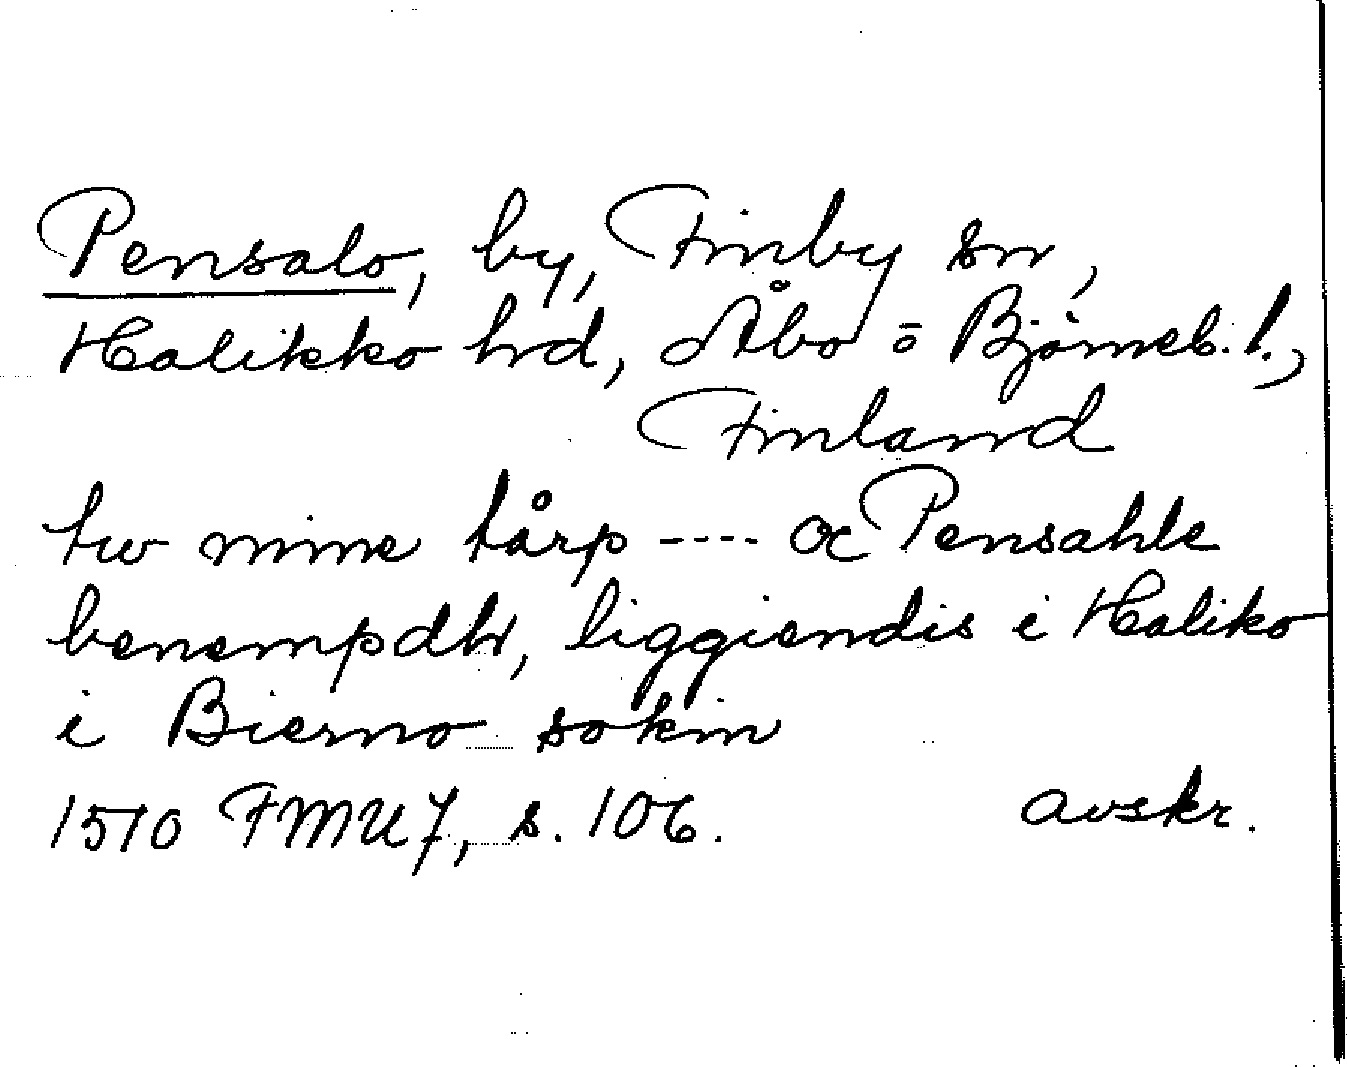 Pensalo, by, Finby sn,
Halikko hrd, Åbo = Björneb. l.,
Finland
tw mine tårp ---- oc Pensahle
benempdh, liggiendis i Haliko
i Bierno sokin
1510 FMU 7, s. 106. avskr.